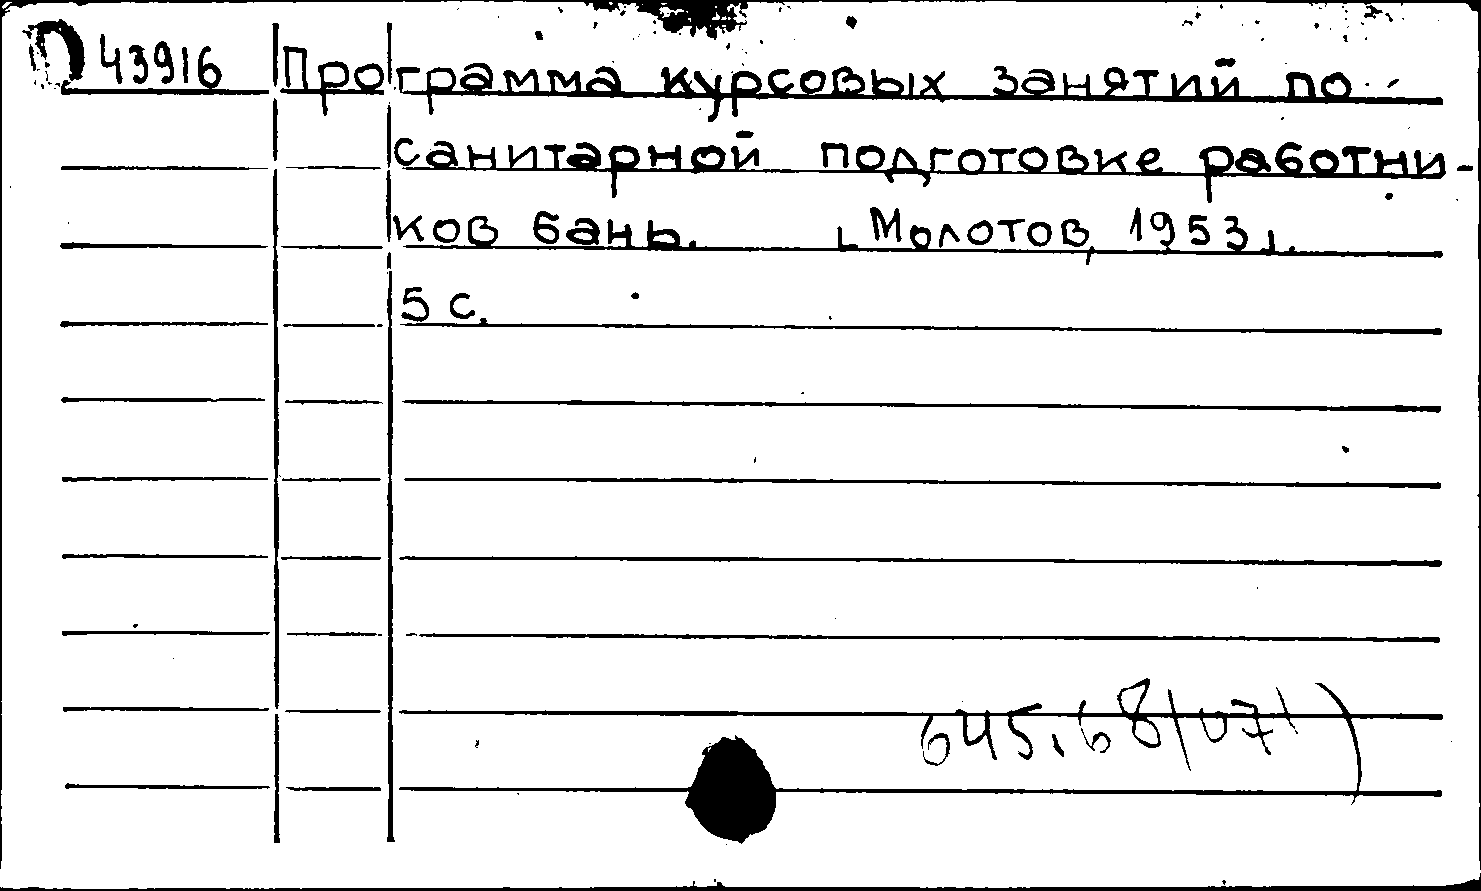 43916 Программа курсовых занятий по
санитарной подготовке работни-
ков бань. [Молотов, 1953].
5 с.
645.68(07)